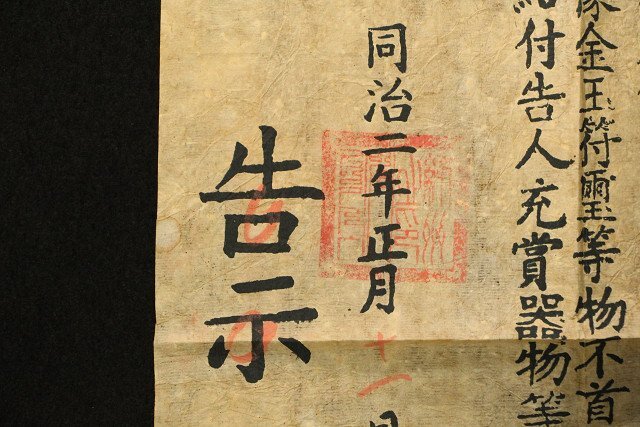 金玉符璽等物不首
付告人充賞器物等
同治二年正月十一日
告示